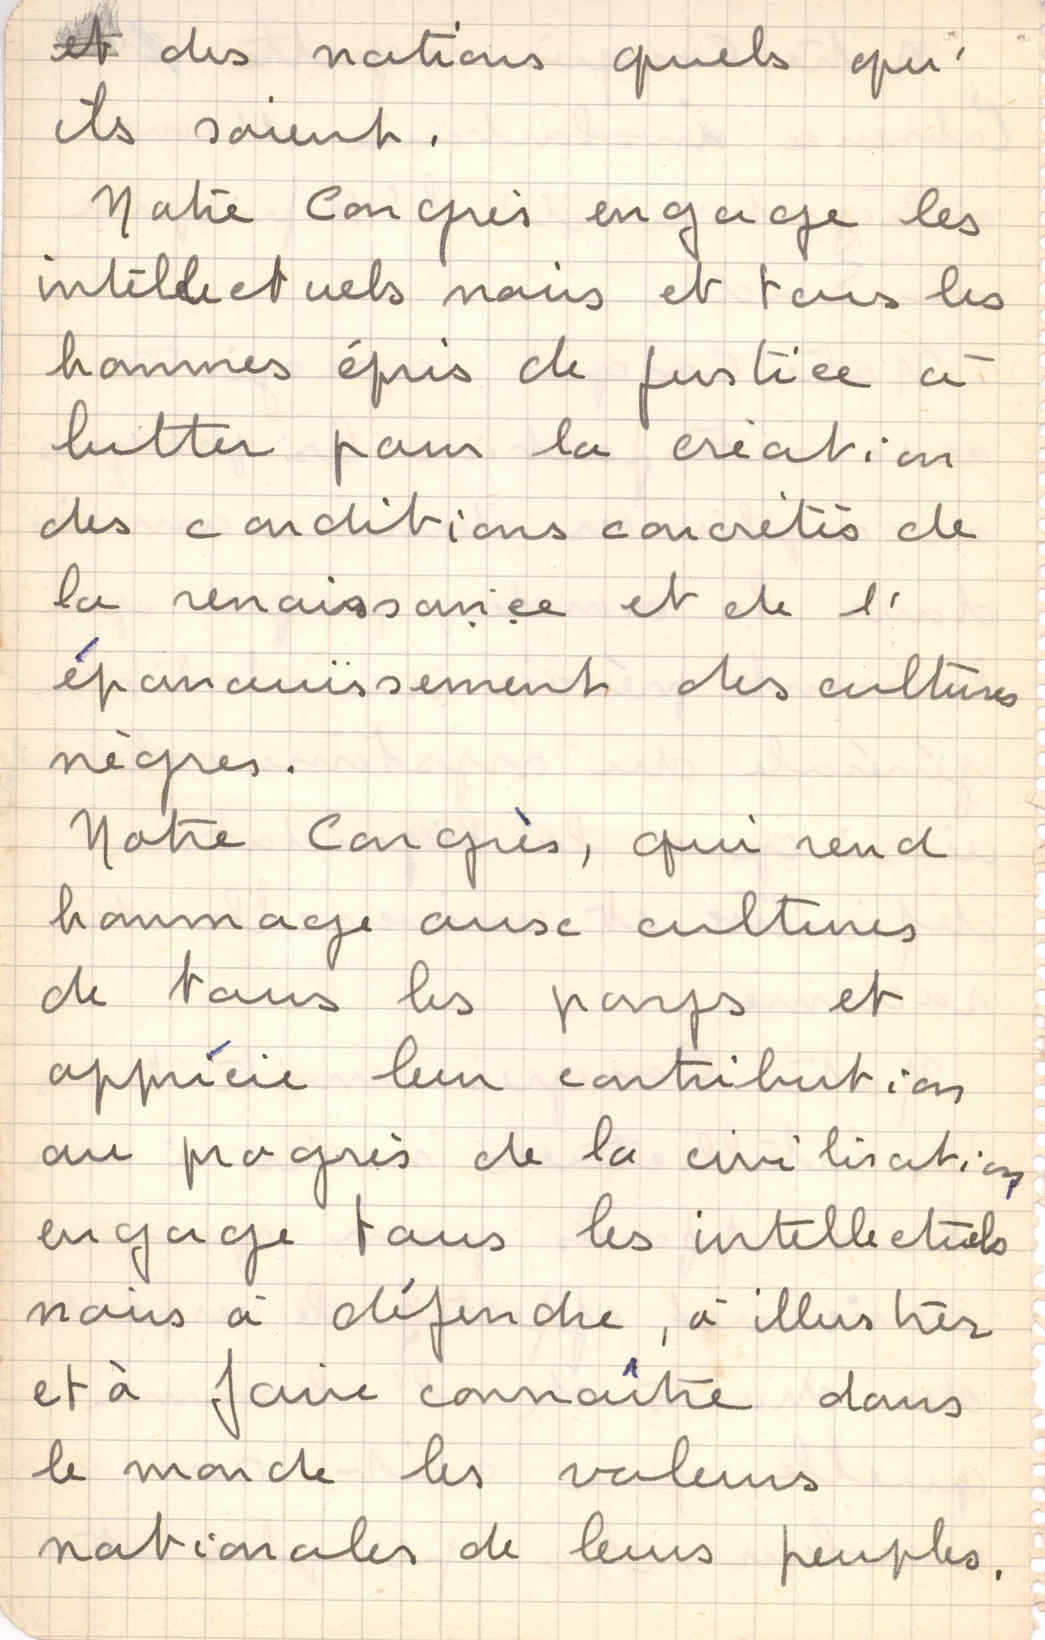 et des nations quels qu'
ils soient.
Notre Congrès engage les
intellectuels noirs et tous les
hommes épris de justice à
lutter pour la création
des conditions concrètes de
la renaissance et de l'
épanouïssement des cultures
nègres.
Notre Congrès, qui rend
hommage aux cultures
de tous les pays et
apprécie leur contribution
au progrès de la civilisation,
engage tous les intellectuels
noirs à défendre, à illustrer
et à faire connaître dans
le monde les valeurs
nationales de leurs peuples.